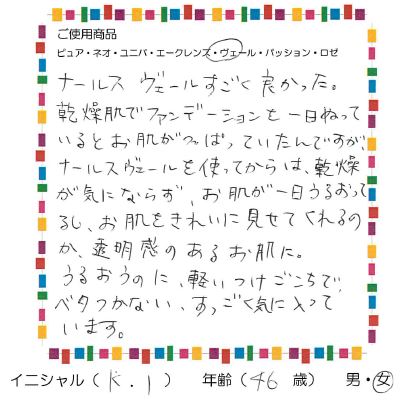 ご使用商品
ピュア・ネオ・ユニバ・エークレンズ・ヴェール・パッション・ロゼ
ナールス ヴェールすごく良かった。
乾燥肌でファンデーションを一日ぬって
いるとお肌がつっぱっていたんですが、
ナールスヴェールを使ってからは、乾燥
が気にならず、お肌が一日うるおって
るし、お肌をきれいに見せてくれるの
か、透明感のあるお肌に。
うるおうのに、軽いつけごこちで、
ベタつかない、すっごく気に入って
います。
イニシャル（K.I） 年齢（46 歳） 男・女